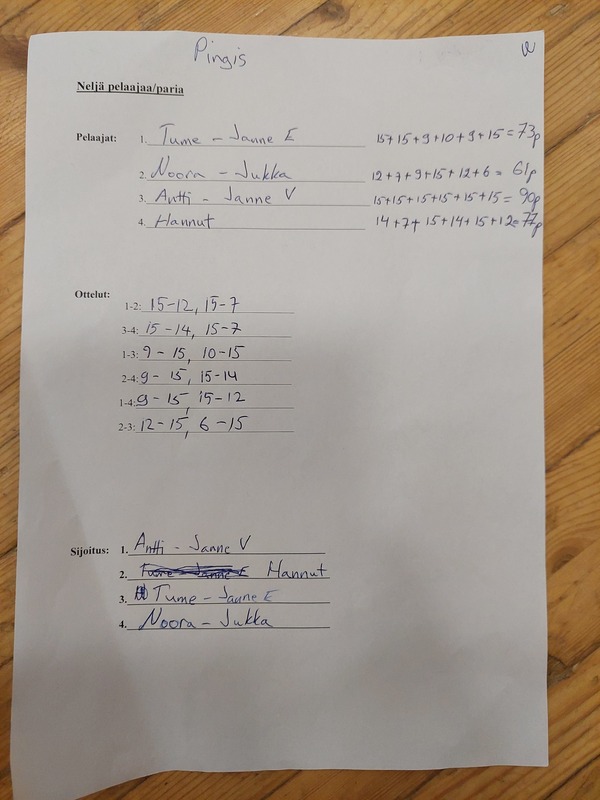 Pingis
Neljä pelaajaa/paria
Pelaajat: 1. Tume - Janne E 15+15+9+10+9+15=73p
2. Noora - Jukka 12+7+9+15+12+6= 61p
3. Antti - Janne V 15+15+15+15+15+15= 90p
4. Hannut 14+7+15+14+15+12=77p
Ottelut:
1-2: 15-12, 15-7
3-4: 15-14, 15-7
1-3: 9-15, 10-15
2-4: 9-15, 15-14
1-4: 9-15, 15-12
2-3: 12-15, 6-15
Sijoitus: 1. Antti - Janne V
2. Tume - Janne E Hannut
3. Tume - Janne E
4. Noora - Jukka